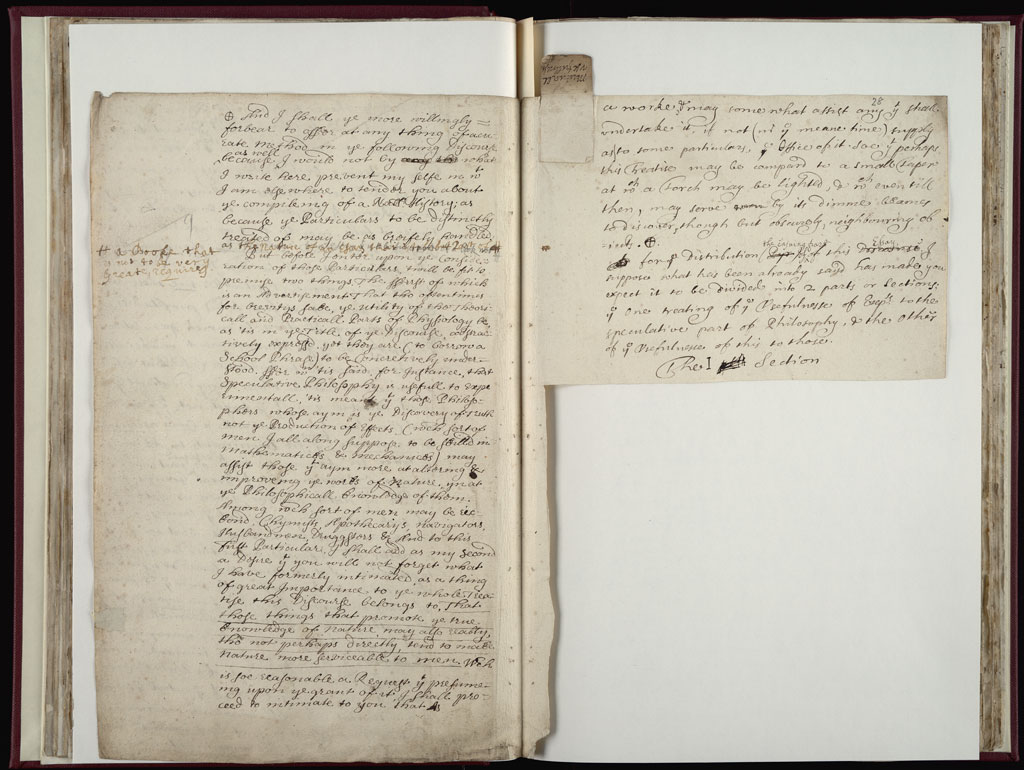 ⊕ And I shall ye more willingly
forbear to offer at any thing of accu=
rate Method in ye following Discourse
as well
because I would not by what
I write here prevent my selfe in wt
I am elsewhere to tender you about
ye compileing of a Nall History; as
because ye Particulars to be distinctly
treated of may be as breifely handled,
as the nature of
# a Booke that
is not to be very
great, requires
But before I enter upon ye conside-
ration of those Particulars, twill be fit to
premise two things. The first of which
is an Advertisement That tho oftentimes
for brevitys sake, ye utility of the Theori-
call and Practicall Parts of Physiology be,
as 'tis in ye Title of ye Discourse, abstrac-
tively express'd, yet they are (to borrow a
School Phrase) to be Concretively under-
stood. ffor wn 'tis said, for Instance, that
Speculative Philosophy is usefull to Expe-
rimentall, 'tis meant yt those Philoso-
phers whose aym is ye Discovery of Truth
not ye Production of Effects, (wch sort of
men I all along suppose to be skilld in
Mathematicks & Mechanicks) may
assist those yt aym more at altering &
improveing ye works of Nature, yn at
ye Philosophicall knowledge of them.
Among wch sort of men may be rec-
kond, Chymists, Apothecarys, navigators,
Husbandmen, Druggsters & And to this
first Particular, I shall add as my Second
a desire yt you will not forget what
I have formerly intimated, as a thing
of great Importance to ye whole Trea-
tise this Discourse belongs to, That
those things that promote ye true
knowledge of Nature may also really,
tho not perhaps directly, tend to make
Nature more serviceable to men. Wch
is soe reasonable a Request yt presume-
ing upon ye grant of it, I shall pro-
ceed to intimate to you that
28
a worke, & may some what assist any yt shall
undertake it, if not (in ye meane time) supply
as to some particulars, ye Office of it. Soe yt perhaps
this Treatise may be compard to a small Taper
at wch a Torch may be lighted, & wch even till
then, may serve by its dimmer beames
to discover, though but obscurely, neighbouring ob
jects. ⊕.
the ensuing part
for ye Distribution of this I
suppose what has been already said has made you
expect it to be divided into 2 parts or Sections;
ye One treating of ye Usefulnesse of Expts to the
speculative part of Philosophy, & the other
of ye Usefulnesse of this to those.
The I Section